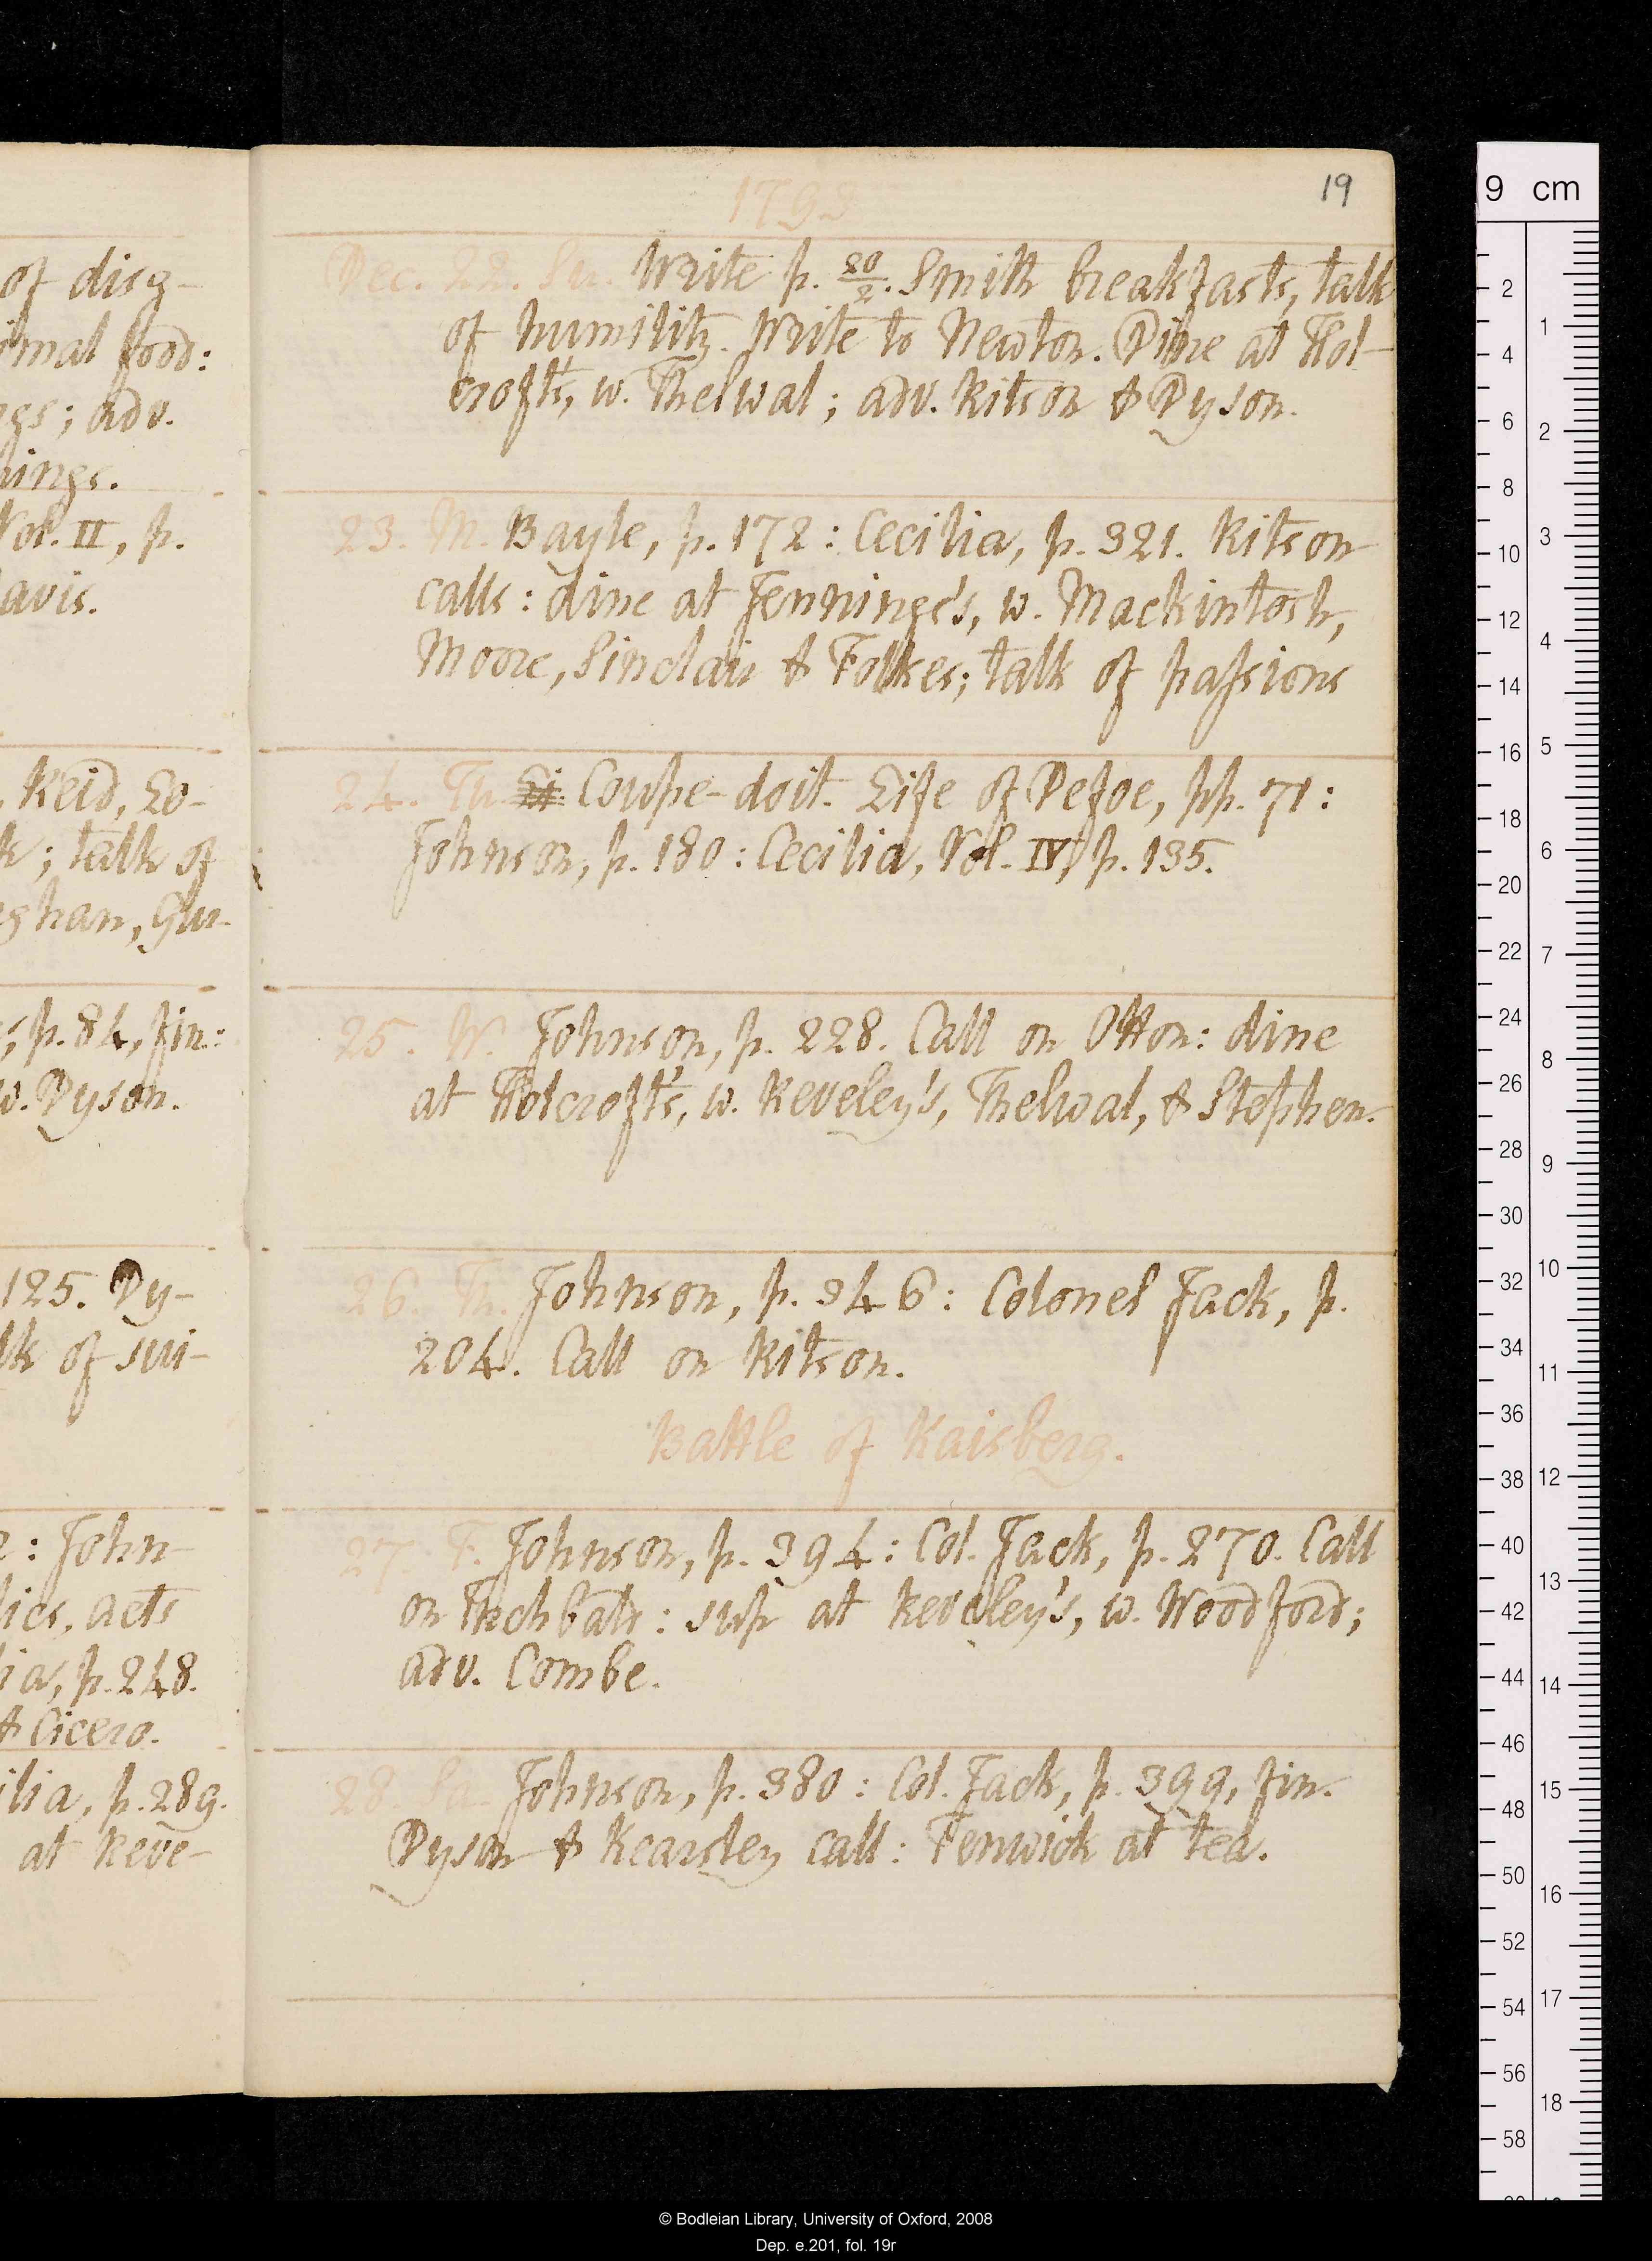 of disg-
imal food:
ngs; adv.
nings.
Vol. II, p.
avis.
. Reid, Lo-
k; talk of
ghan, Gur-
s, p. 84, fin.:
w. Dyson.
125. Dy-
lk of sui-
2: John-
lics, acts
lia, p. 248.
& Cicero.
ilia, p. 289.
at Reve-
1793
19
Dec. 22. Su. Write p. 20/2. Smith breakfasts, talk
of humility. Write to Newton. Dine at Hol-
croft's, w. Thelwal; adv. Ritson & Dyson.
23. M. Bayle, p. 172: Cecilia, p. 321. Ritson
calls: dine at Jennings's, w. Mackintosh,
Moore, Sinclair & Folkes; talk of passions
24. Tu. Li Coupe-doit. Life of Defoe, pp. 71:
Johnson, p. 180: Cecilia, Vol. IV, p. 135.
25. W. Johnson, p. 228. Call on Otton: dine
at Holcroft's, w. Reveley's, Thelwal, & Stephen.
26. Th. Johnson, p. 346: Colonel Jack, p.
204. Call on Ritson.
Battle of Kaisberg.
27. F. Johnson, p. 394: Col. Jack, p. 270. Call
on Inchbald: sup at Reveley's, w. Woodford;
adv. Combe.
28. Sa. Johnson, p. 380: Col. Jack, p. 399, fin.
Dyson & Kearsley call: Fenwick at tea.
9 cm
2
4
6
8
10
12
14
16
18
20
22
24
26
28
30
32
34
36
38
40
42
44
46
48
50
52
54
56
58
1
2
3
4
5
6
7
8
9
10
11
12
13
14
15
16
17
18
© Bodleian Library, University of Oxford, 2008
Dep. e.201, fol. 19r